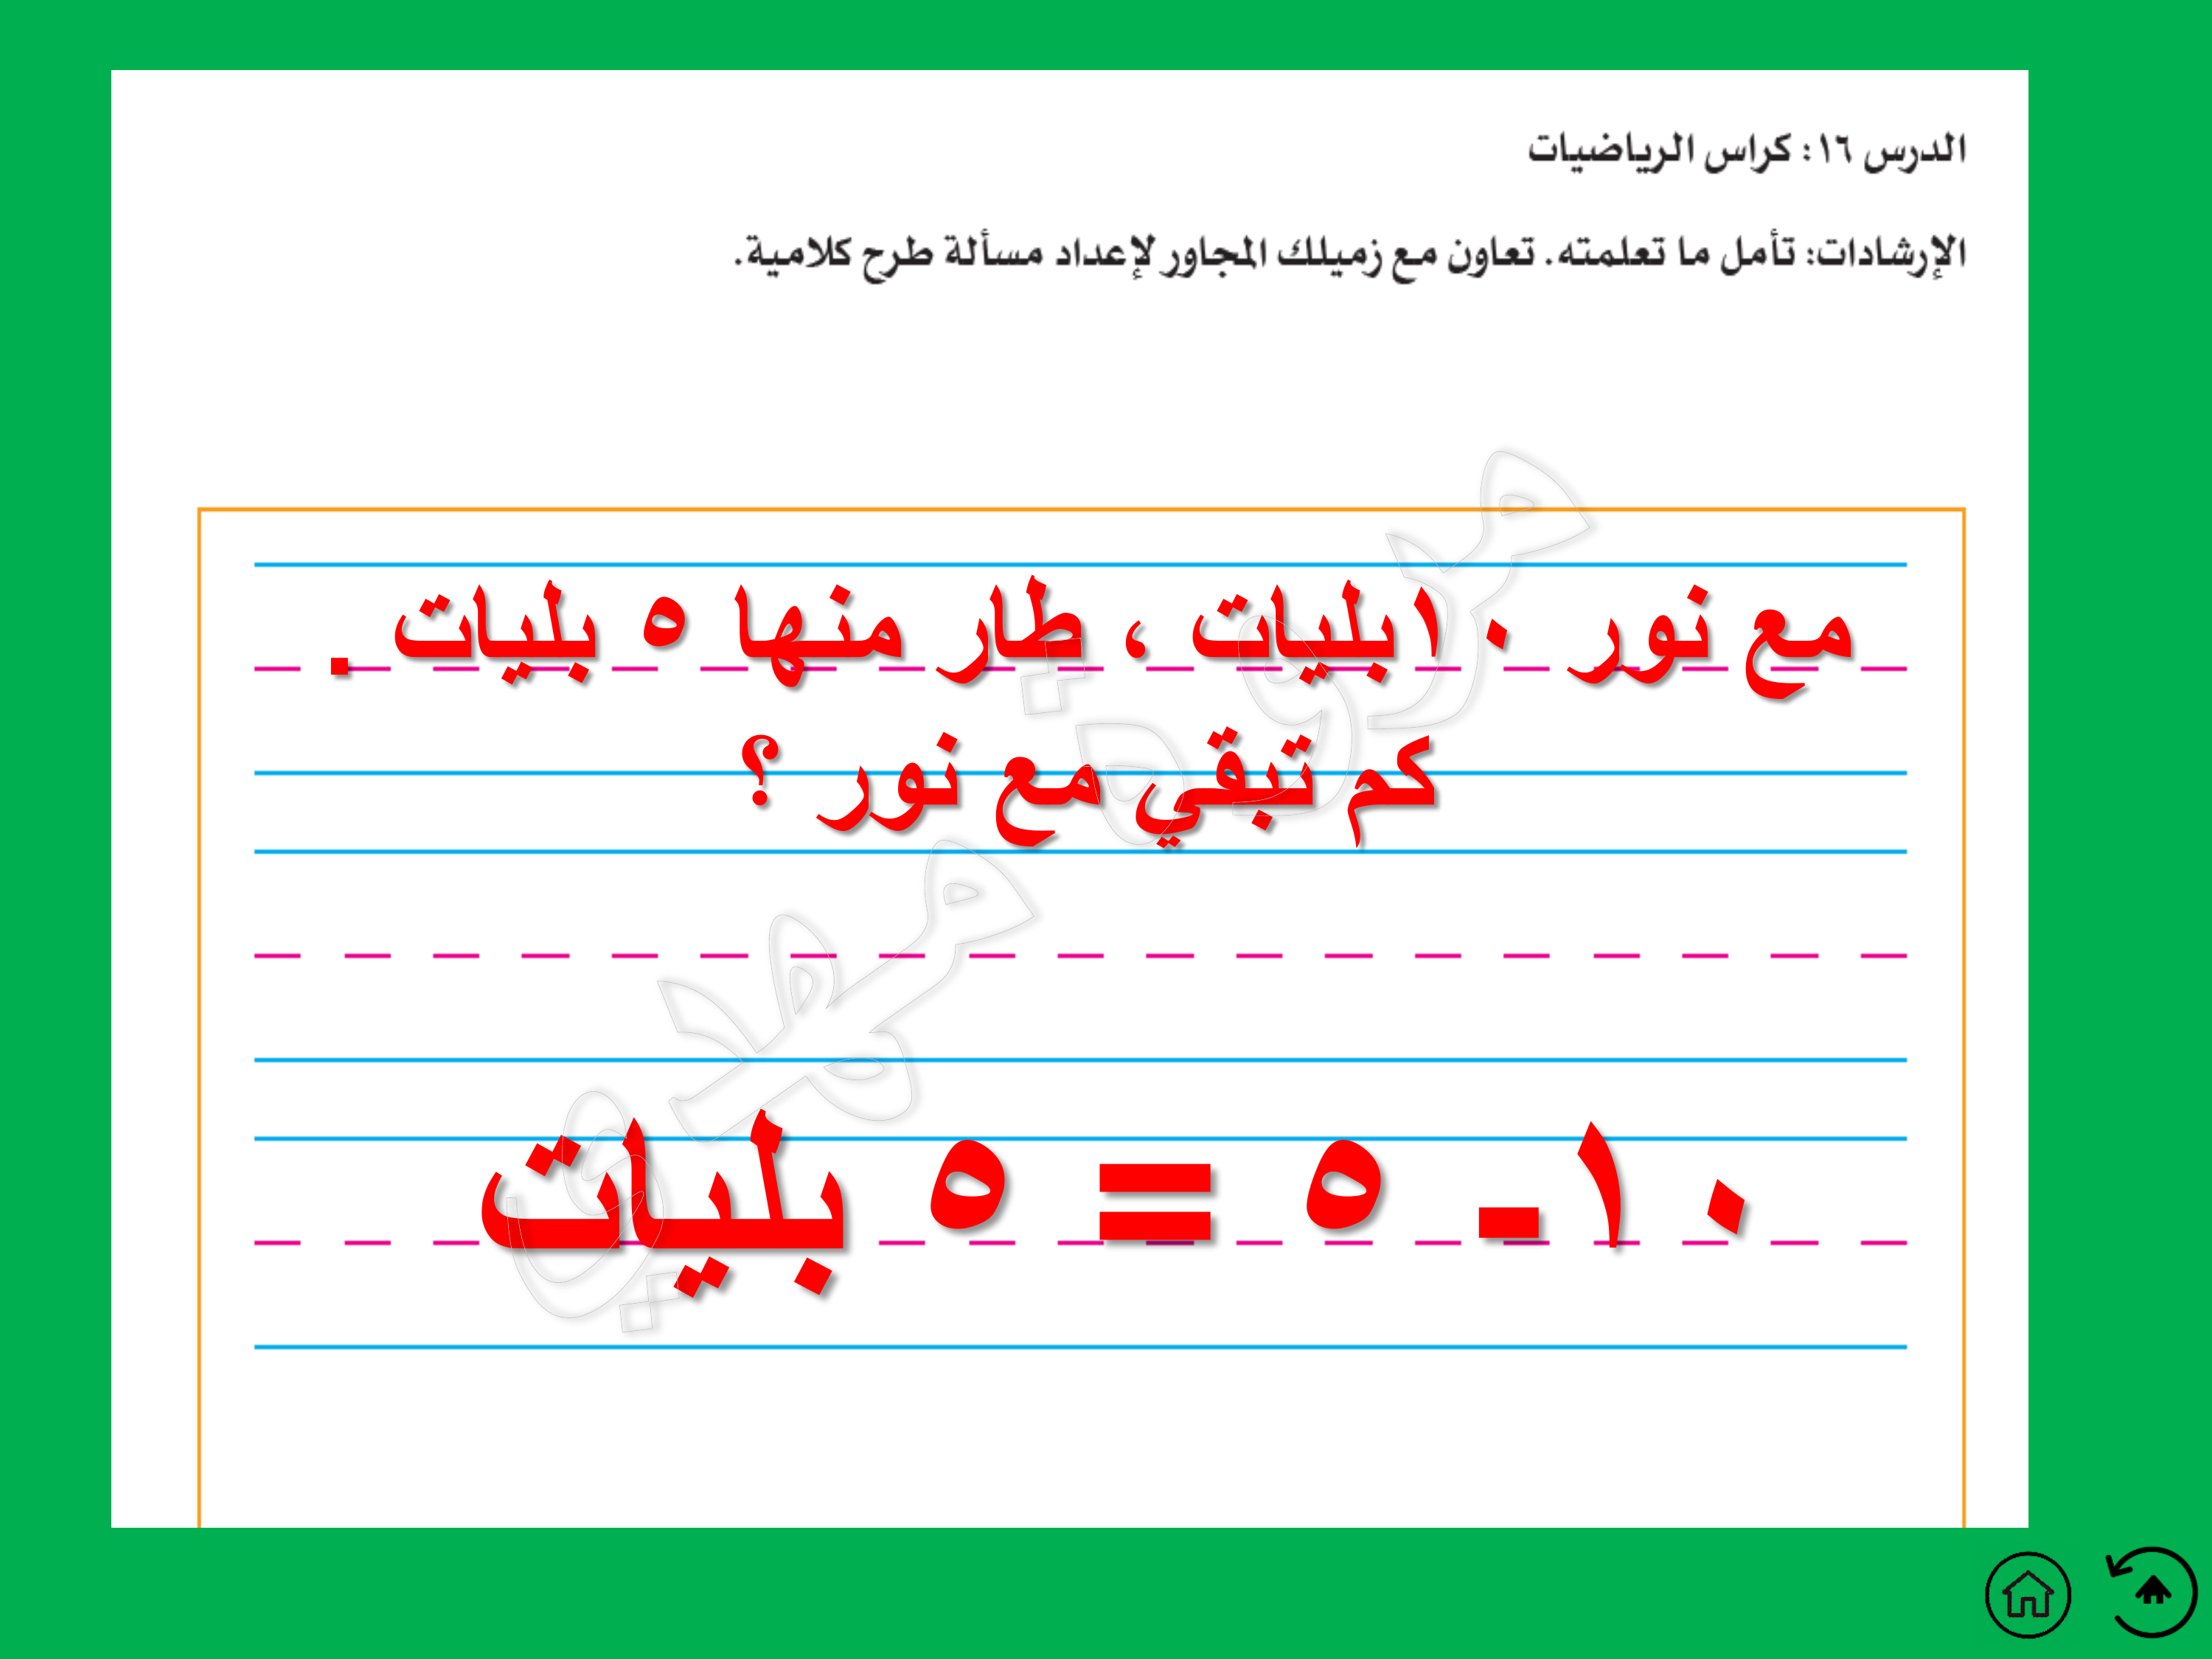 الدرس ١٦: كراس الرياضيات
الإرشادات: تأمل ما تعلمته. تعاون مع زميلك المجاور لإعداد مسألة طرح كلامية.
مع نور ١٠بليات ، طار منها ٥ بليات .
كم تبقي مع نور ؟
١٠- ٥ = ٥ بليات